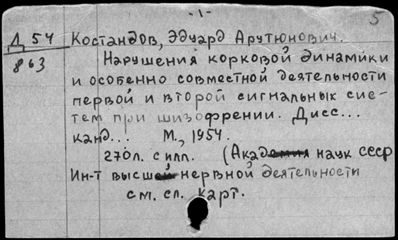 -1-
5
Д 54
863
Костандов, Эдуард Арутюнович.
Нарушения корковой динамики
и особенно совместной деятельности
первой и второй сигнальных сис-
тем при шизофрении. Дисс...
канд... М., 1954.
270л. с илл. (Академия наук СССР
Ин-т высшей нервной деятельности
см. сл. карт.